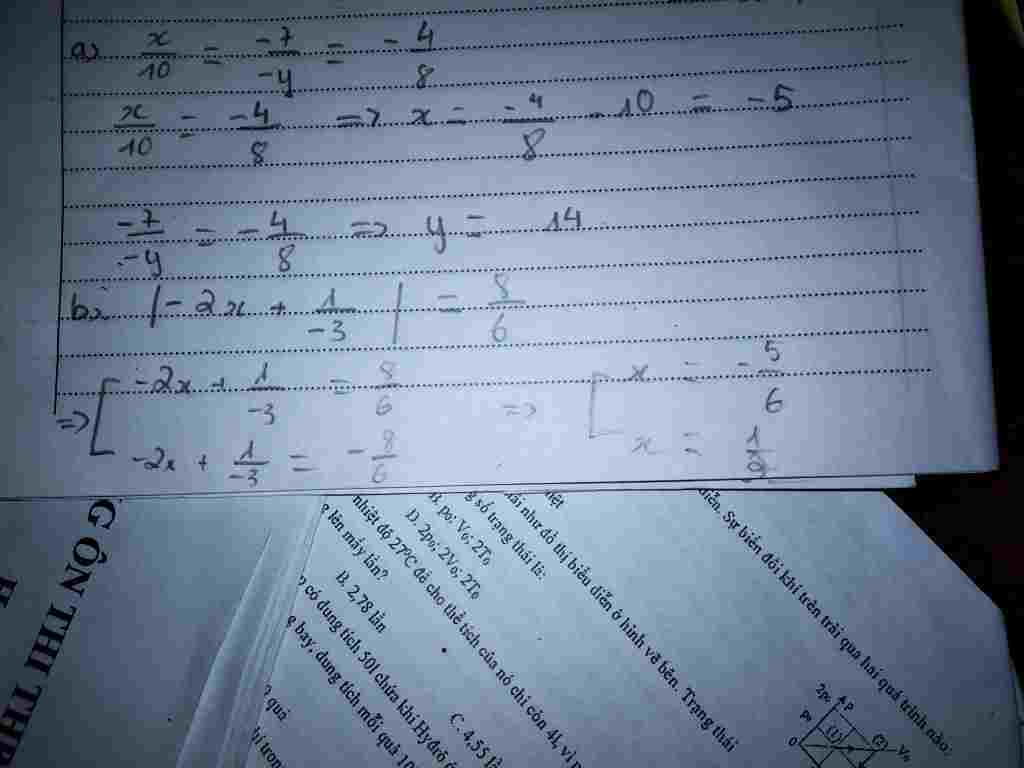 a) x/10 = -7/-y = -4/8
x/10 = -4/8 => x = -4/8 . 10 = -5
-7/-y = -4/8 => y = 14
b) |-2x + 1/-3| = 8/6
=> [ -2x + 1/-3 = 8/6 => [ x = -5/6
-2x + 1/-3 = -8/6 x = 1/2
G ÔN THI THP
diễn. Sự biến đổi khí trên trải qua hai quá trình nào:
ái như đồ thị biểu diễn ở hình vẽ bên. Trạng thái
g số trạng thái là:
B. p₀; V₀; 2T₀
D. 2p₀; 2V₀; 2T₀
nhiệt độ 27⁰C để cho thể tích của nó chỉ còn 4l, vì p
g lên mấy lần?
B. 2,78 lần
C. 4,55 lầ
có dung tích 50l chứa khí Hyđrô ở
g bay, dung tích mỗi quả 10
quả
2p₀
p
p₀
(1)
(2)
0
V₀